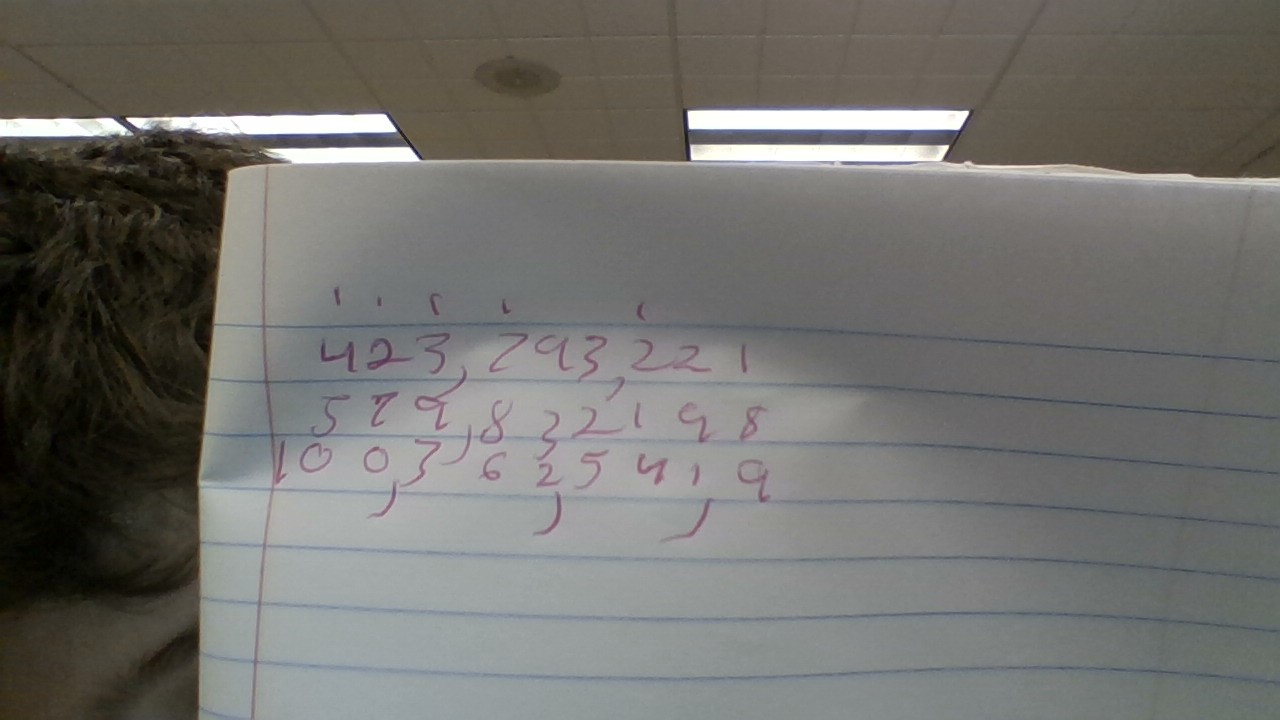 1 1 1 1 1
423,793,221
579,832198
100,362,541,9